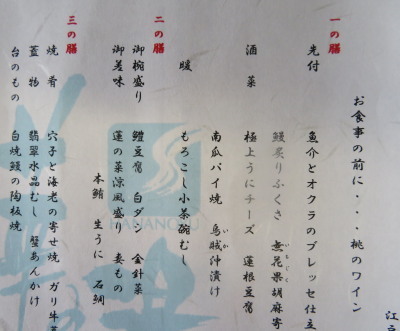 お食事の前に・・・桃のワイン
一の膳
先付 魚介とオクラのブレッセ仕立
鰻炙りふくさ 無花果胡麻寄
いちじく
酒菜 極上うにチーズ 蓮根豆腐
南瓜パイ焼 烏賊沖漬け
いか
暖 もろこし小茶碗むし
二の膳
御椀盛り 鱧豆腐 白ダツ 金針菜
御差味 蓮の葉涼風盛り 妻もの
本鮪 生うに 石鯛
三の膳
焼肴 穴子と海老の寄せ焼 ガリ牛蒡
蓋物 翡翠水晶むし 蟹あんかけ
台のもの 白焼鰻の陶板焼
HANANOKI